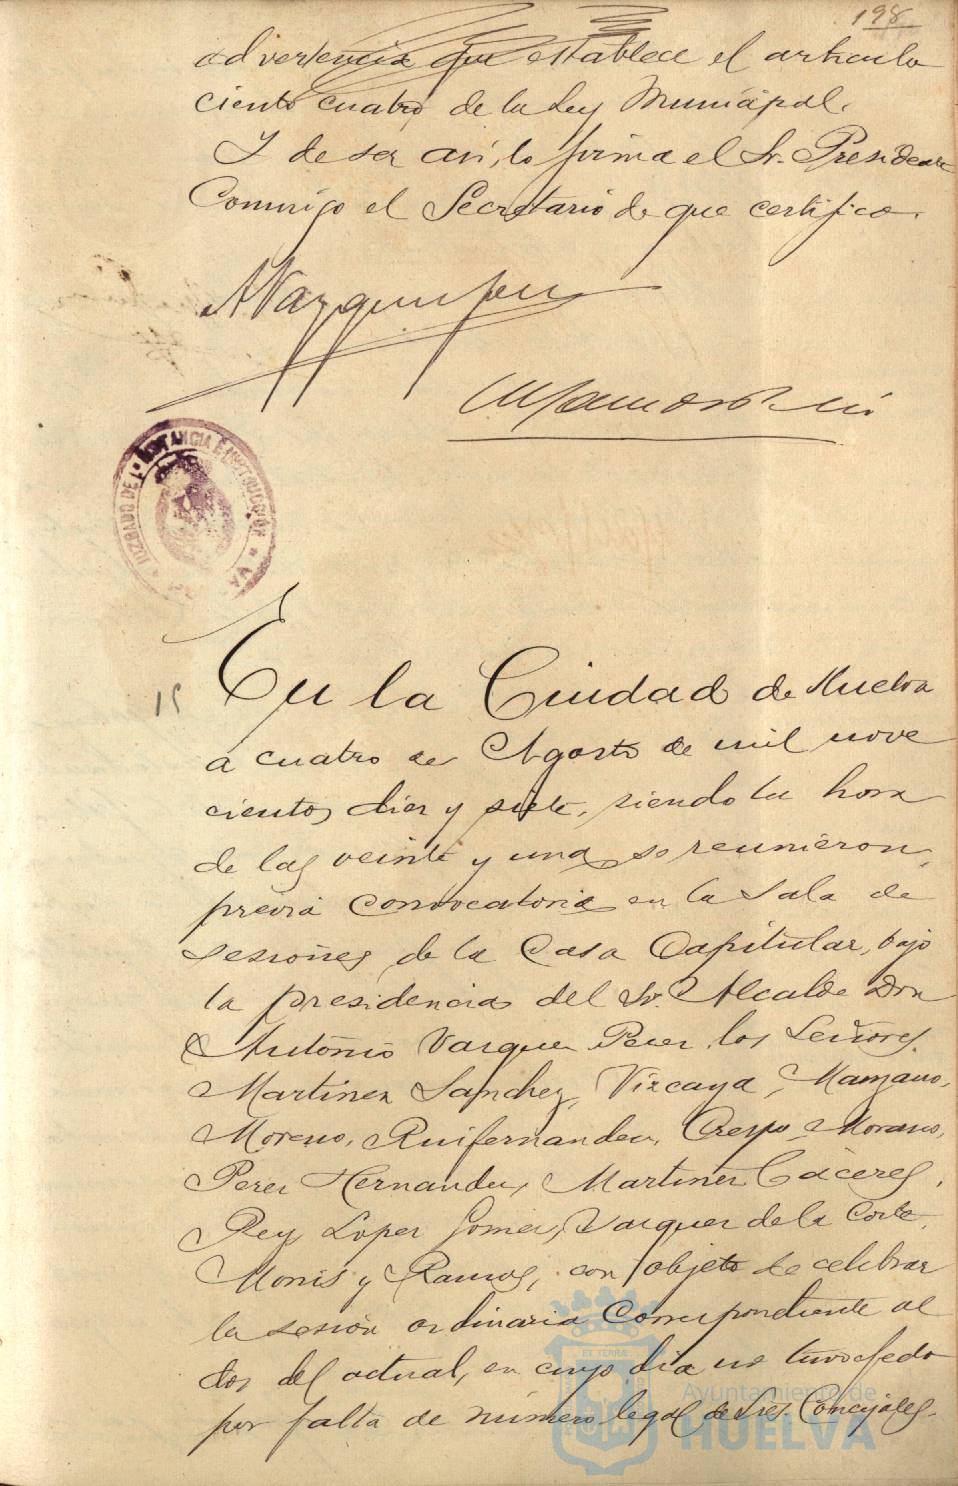 198
advertencia que establece el articulo
ciento cuatro, de la Ley Municipal.
Y de ser asi, lo firma el Sr. Presidente
Conmigo el Secretario de que certifico.
JUZGADO DE 1ª INSTANCIA E INSTRUCCIÓN
15
En la Ciudad de Huelva
a cuatro de Agosto de mil nove
cientos diez y siete, siendo la hora
de las veinte y una se reunieron,
previa convocatoria en la Sala de
sesiones de la Casa Capitular, bajo
la presidencia del Sr. Alcalde Don
Antonio Vazquez Perez los Señores
Martinez Sanchez, Vizcaya, Manzano,
Moreno, Ruifernandez, Crespo, Morano,
Perez Hernandez, Martinez Cáceres,
Rey, Lopez Gomez, Vazquez de la Corte,
Monis y Ramos, con objeto de celebrar
la sesión ordinaria correspondiente al
dos del actual, en cuyo dia no tuvo efecto
por falta de número legal de Sres. Concejales.
ET TERRÆ
Ayuntamiento de
HUELVA